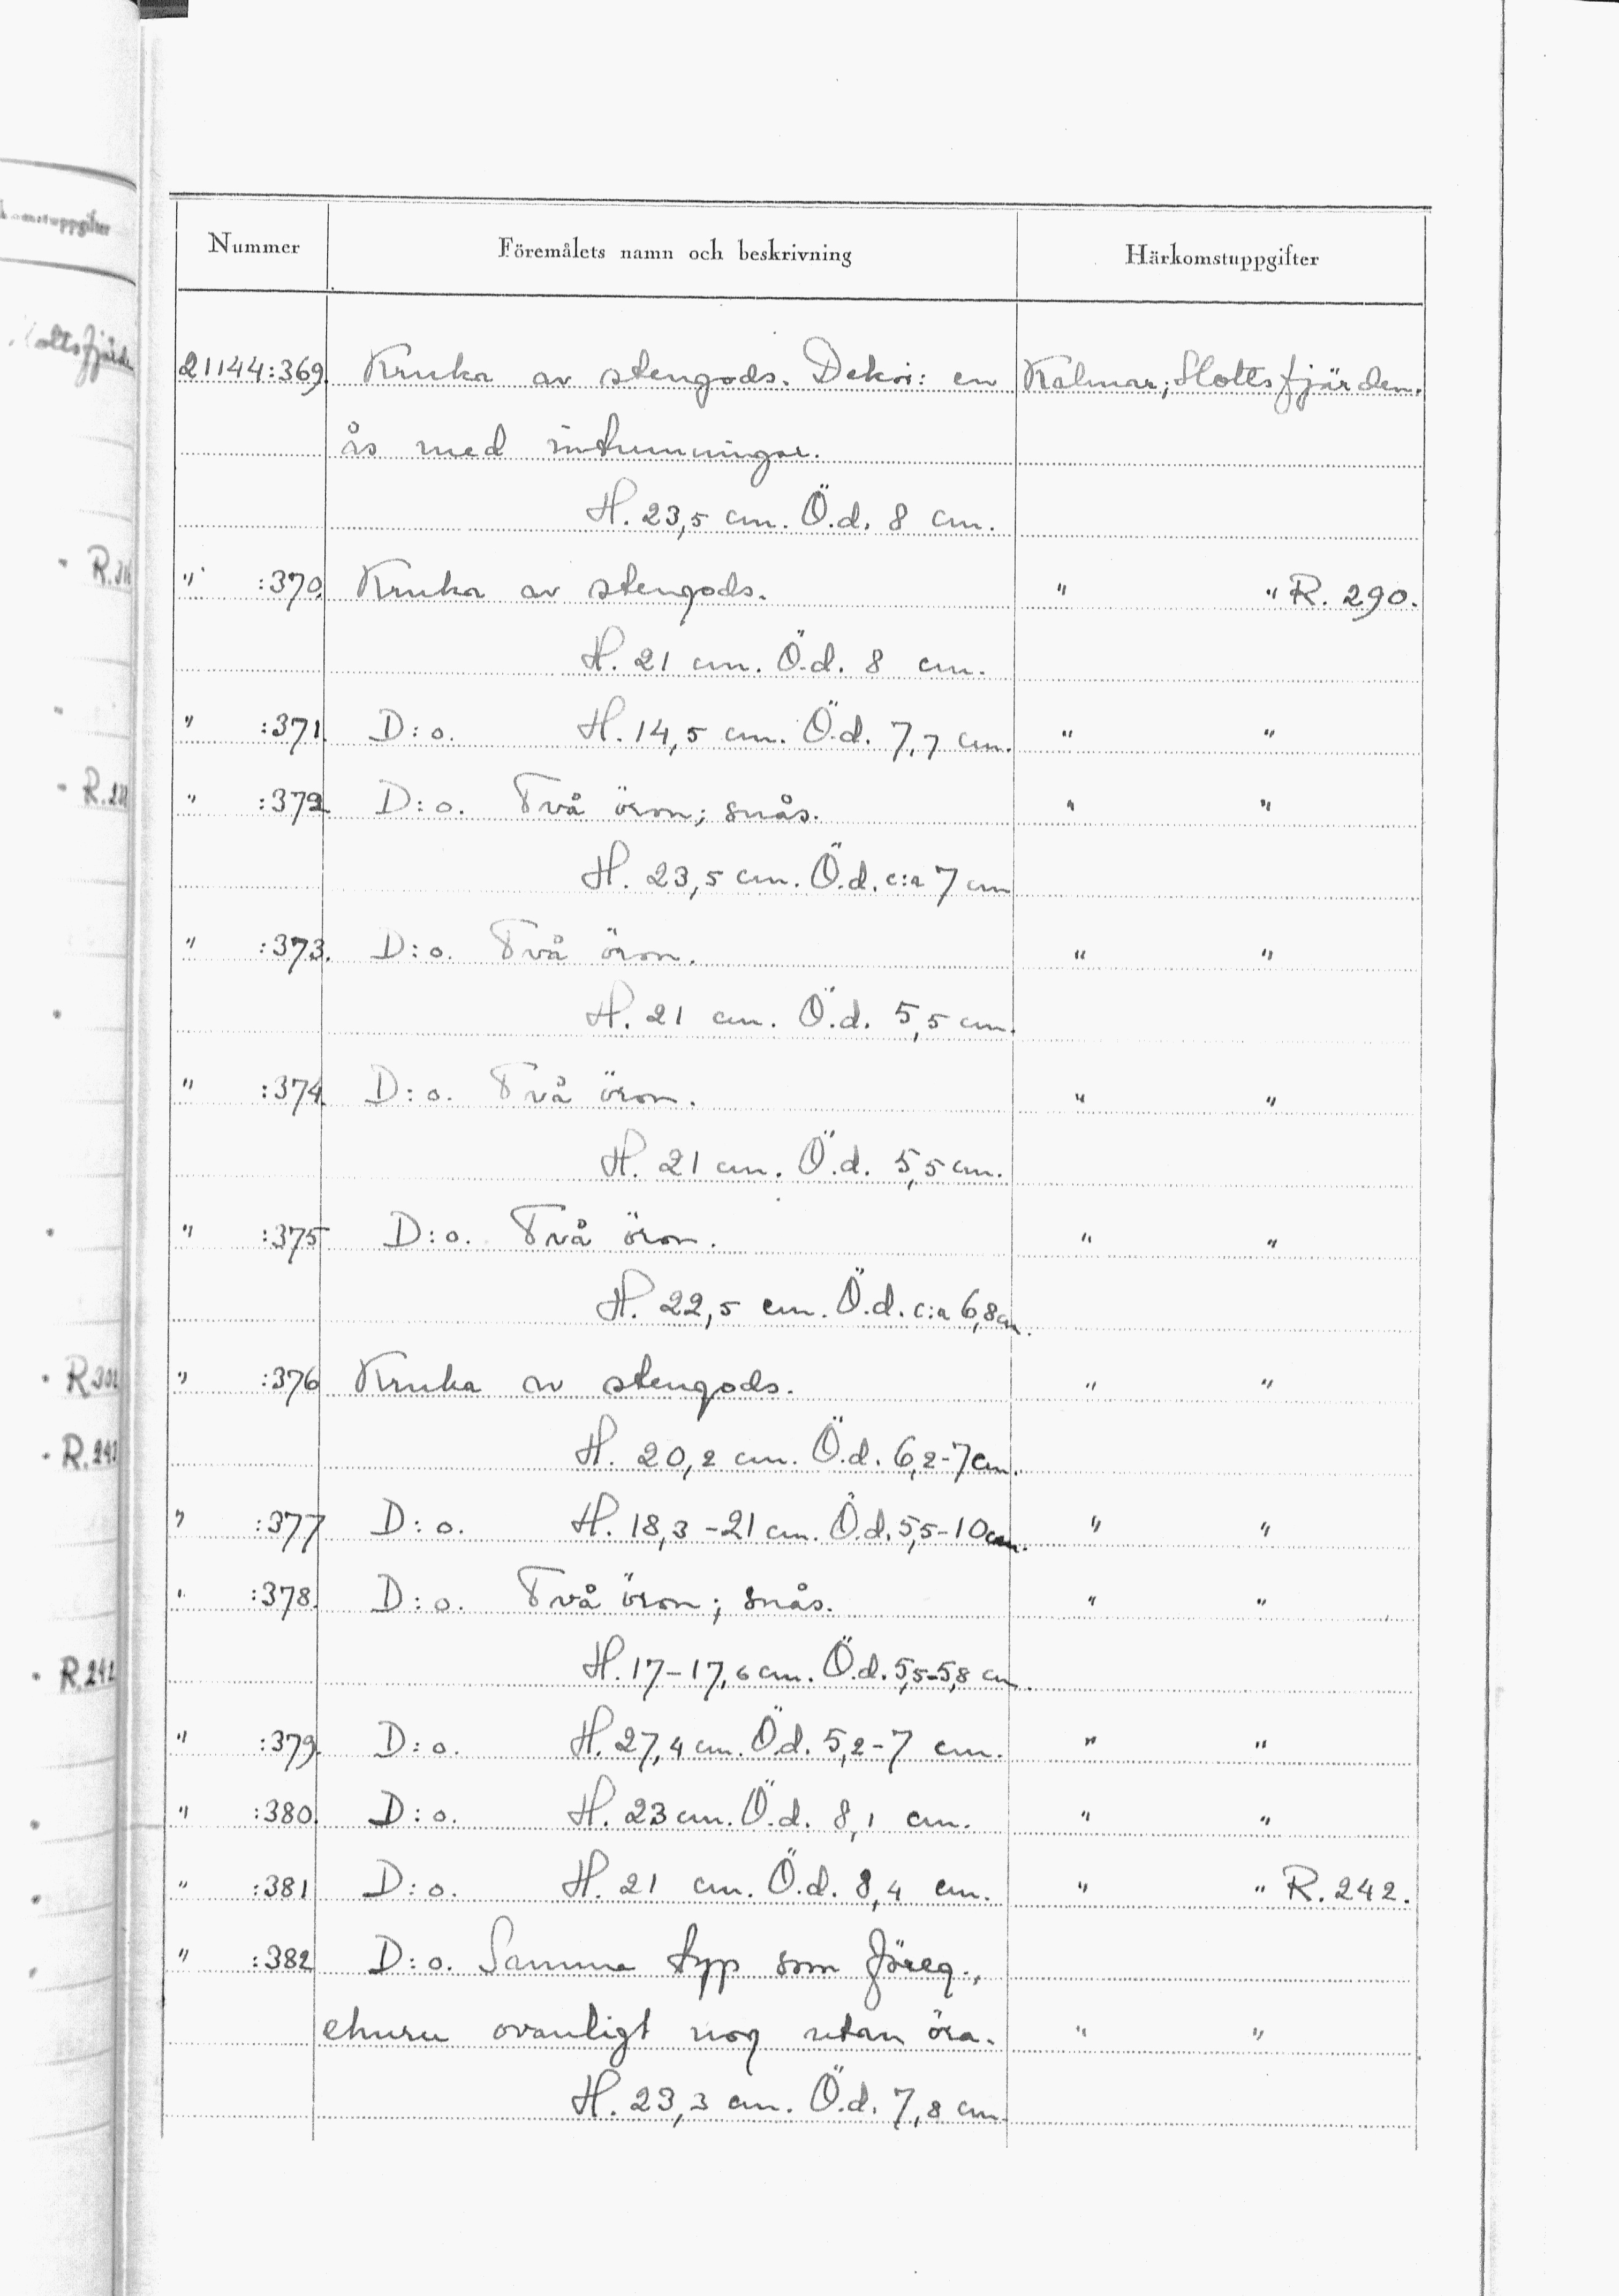 Nummer Föremålets namn och beskrivning Härkomstuppgifter
21144:369. Kruka av stengods. Dekor: en Kalmar; Slottsfjärden.
ås med intumningar.
H. 23,5 cm. Ö.d. 8 cm.
" :370. Kruka av stengods. " " R. 290.
H. 21 cm. Ö.d. 8 cm.
" :371. D:o. H. 14,5 cm. Ö.d. 7,7 cm. " "
" :372 D:o. Två öron; snås. " "
H. 23,5 cm. Ö.d. c:a 7 cm
" :373. D:o. Två öron. " "
H. 21 cm. Ö.d. 5,5 cm.
" :374. D:o. Två öron. " "
H. 21 cm. Ö.d. 5,5 cm.
" :375 D:o. Två öron. " "
H. 22,5 cm. Ö.d. c:a 6,8 cm.
" :376 Kruka av stengods. " "
H. 20,2 cm. Ö.d. 6,2-7 cm.
" :377 D:o. H. 18,3-21 cm. Ö.d. 5,5-10 cm. " "
" :378. D:o. Två öron; snås. " "
H. 17-17,6 cm. Ö.d. 5,5-5,8 cm.
" :379. D:o. H. 27,4 cm. Ö.d. 5,2-7 cm. " "
" :380. D:o. H. 23 cm. Ö.d. 8,1 cm. " "
" :381 D:o. H. 21 cm. Ö.d. 8,4 cm. " " R. 242.
" :382 D:o. Samma typ som föreg.,
ehuru ovanligt nog utan öra. " "
H. 23,3 cm. Ö.d. 7,8 cm.